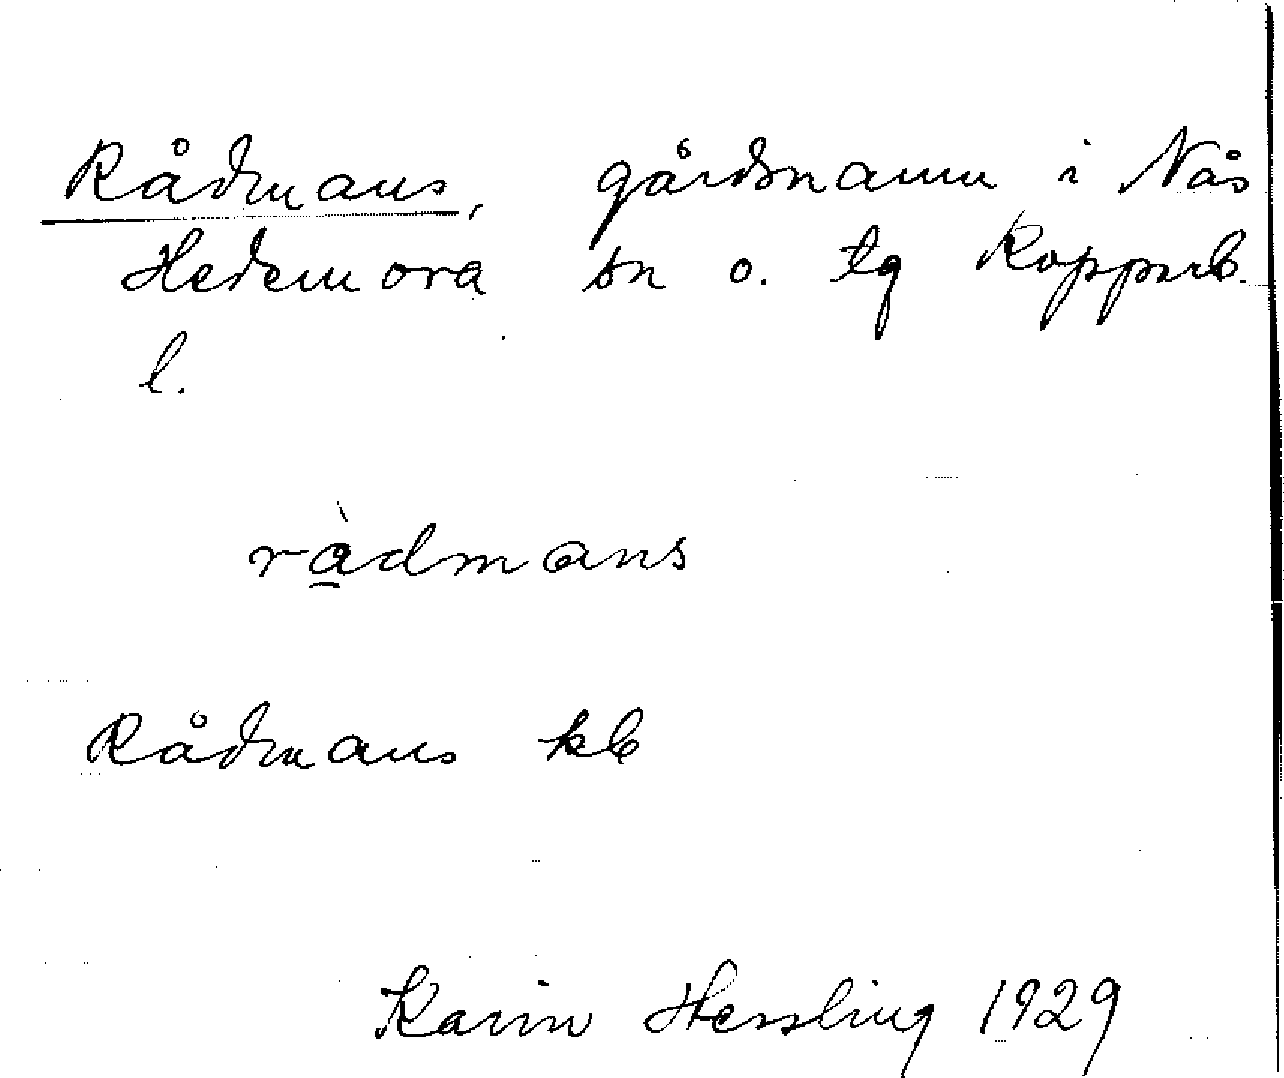 Rådmans, gårdsnamn i Nås
Hedemora sn o. tg Kopparb.
l.
ràdmans
Rådmans kb
Karin Hessling 1929